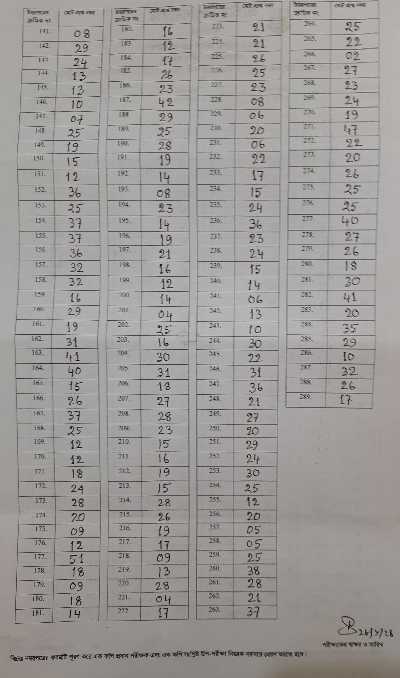 ইনভিজিলেটরের ক্রমিক নং মোট প্রাপ্ত নম্বর
141. 08
142. 29
143. 24
144. 13
145. 13
146. 10
147. 07
148. 25
149. 19
150. 15
151. 12
152. 36
153. 25
154. 37
155. 37
156. 36
157. 32
158. 32
159. 16
160. 29
161. 19
162. 31
163. 41
164. 40
165. 15
166. 26
167. 37
168. 25
169. 12
170. 12
171. 18
172. 24
173. 28
174. 20
175. 09
176. 12
177. 51
178. 18
179. 09
180. 18
181. 14
ক্রমিক নং মোট প্রাপ্ত নম্বর
182. 16
183. 12
184. 17
185. 26
186. 23
187. 42
188. 29
189. 25
190. 28
191. 19
192. 14
193. 08
194. 23
195. 14
196. 19
197. 21
198. 16
199. 12
200. 14
201. 04
202. 25
203. 16
204. 30
205. 31
206. 18
207. 27
208. 28
209. 23
210. 15
211. 16
212. 19
213. 15
214. 28
215. 26
216. 19
217. 17
218. 09
219. 13
220. 28
221. 04
222. 17
223. 21
224. 21
225. 26
226. 25
227. 23
228. 08
229. 06
230. 20
231. 06
232. 22
233. 17
234. 15
235. 24
236. 36
237. 23
238. 24
239. 15
240. 14
241. 06
242. 13
243. 10
244. 30
245. 22
246. 31
247. 36
248. 21
249. 27
250. 20
251. 29
252. 24
253. 30
254. 25
255. 12
256. 20
257. 05
258. 05
259. 25
260. 38
261. 28
262. 21
263. 37
264. 25
265. 22
266. 02
267. 27
268. 23
269. 24
270. 19
271. 47
272. 22
273. 20
274. 26
275. 25
276. 25
277. 40
278. 27
279. 26
280. 18
281. 30
282. 41
283. 20
284. 35
285. 29
286. 10
287. 32
288. 26
289. 17
পরীক্ষকের স্বাক্ষর ও তারিখ